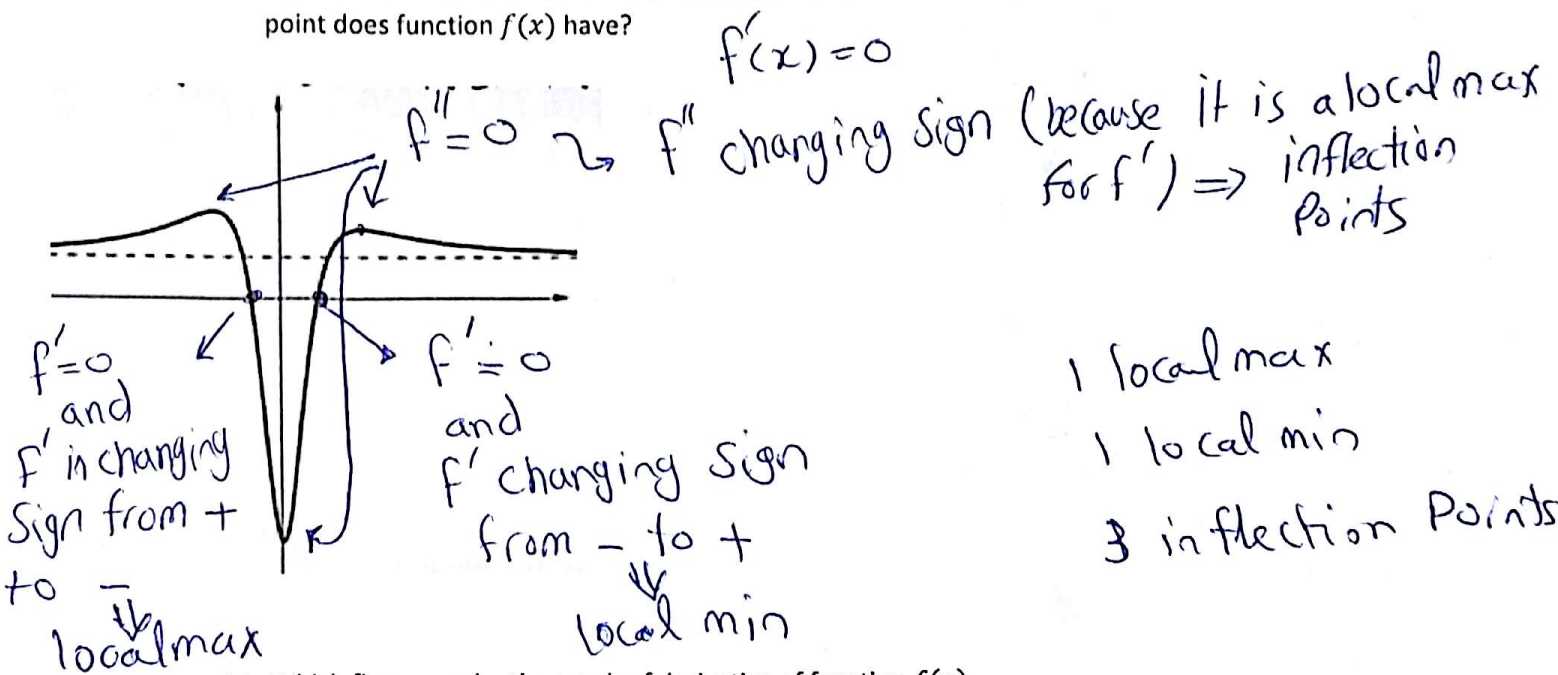 point does function f(x) have?
f'(x) = 0
f'' = 0 ↝ f'' changing sign (because it is a local max
for f') ⇒ inflection
points
f' = 0
and
f' in changing
sign from +
to −
⇓
local max
f' = 0
and
f' changing sign
from − to +
⇓
local min
1 local max
1 local min
3 inflection points